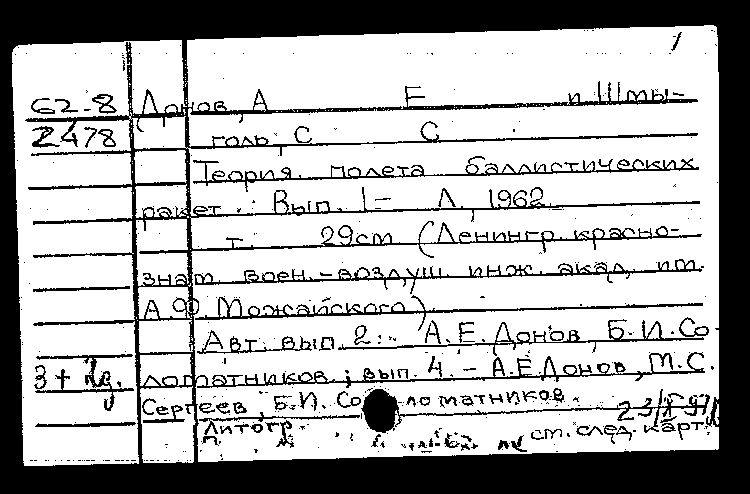 1
62-8 Донов, А Е и Шмы-
2478 голь, С С
Теория полета баллистических
ракет. Вып. 1- Л., 1962.
т. 29cm (Ленингр. красно-
знам. воен.-воздуш. инж. акад. им.
А.Ф. Можайского)
Авт. вып. 2: А.Е. Донов, Б.И. Со-
3+ ломатников; вып. 4. - А.Е. Донов, М.С.
Сергеев, Б.И. Соломатников.
Литогр. ст. след. карт.